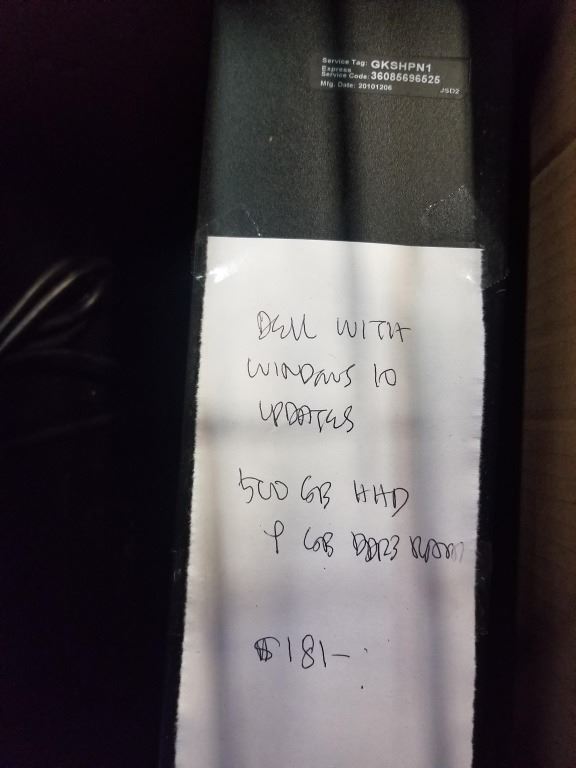 Service Tag: GKSHPN1
Express
Service Code: 36085696525
Mfg. Date: 20101206
JSD2
DELL WITH
WINDOWS 10
UPDATES
500 GB HHD
4 GB DDR3 RAM
$181-